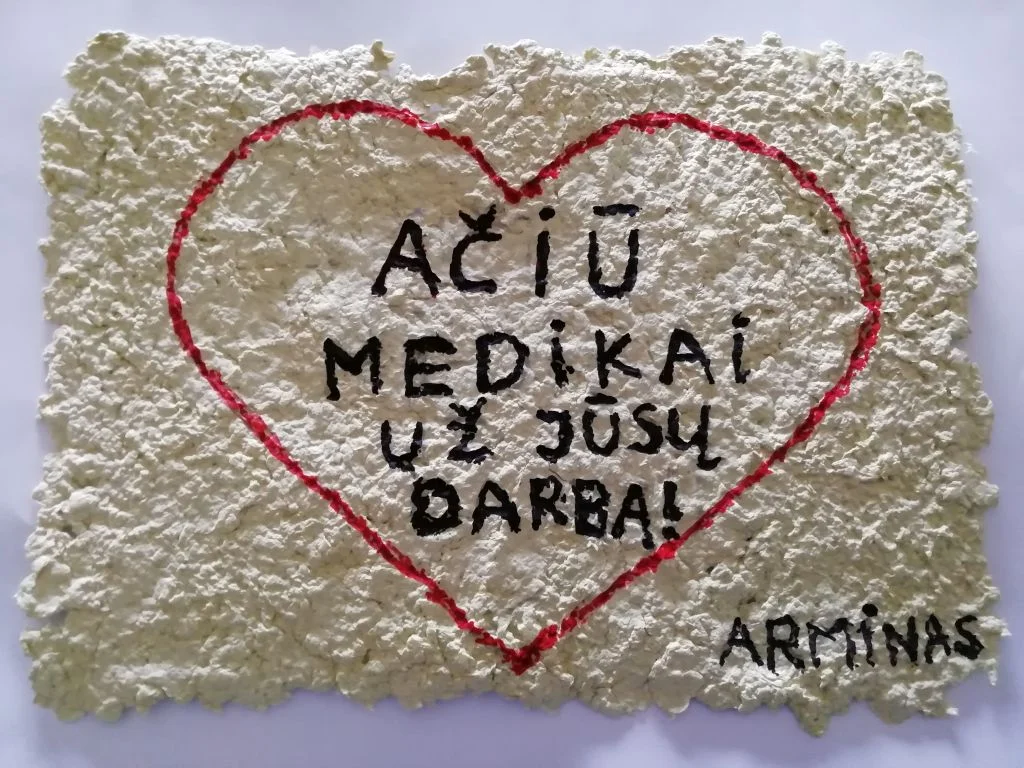 AČIŪ
MEDIKAI
UŽ JŪSŲ
DARBĄ!
ARMINAS